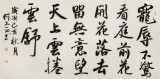 寵辱不驚
看庭前花
開花落去
留無意望
天上雲捲
雲舒